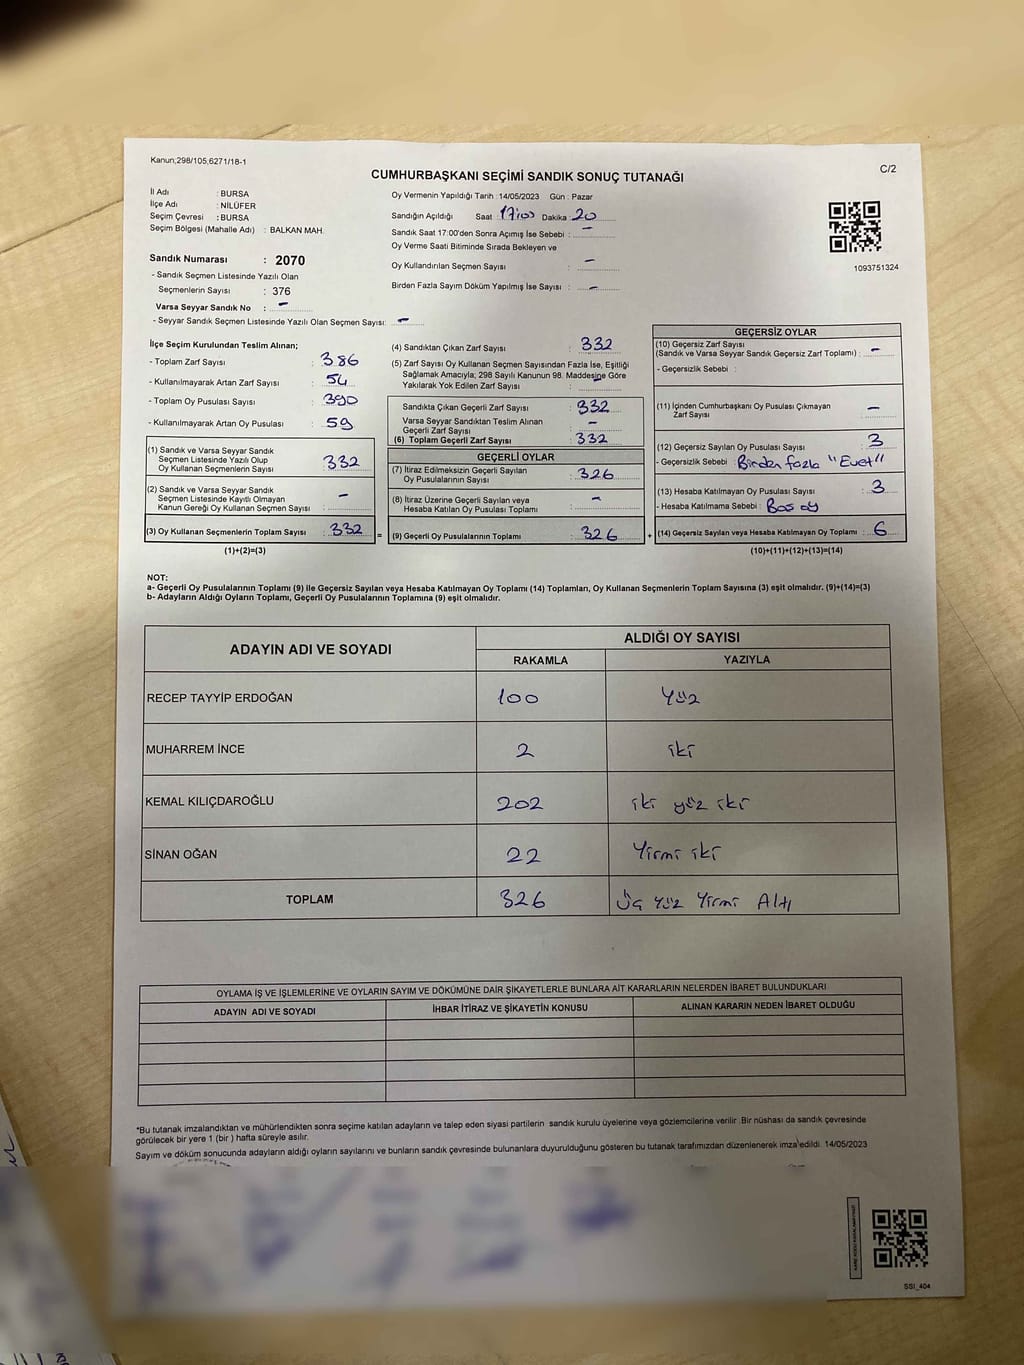 Kanun;298/105,6271/18-1
C/2
CUMHURBAŞKANI SEÇİMİ SANDIK SONUÇ TUTANAĞI
İl Adı : BURSA
İlçe Adı : NİLÜFER
Seçim Çevresi : BURSA
Seçim Bölgesi (Mahalle Adı) : BALKAN MAH.
Sandık Numarası : 2070
- Sandık Seçmen Listesinde Yazılı Olan
Seçmenlerin Sayısı : 376
Varsa Seyyar Sandık No : -
- Seyyar Sandık Seçmen Listesinde Yazılı Olan Seçmen Sayısı: -
Oy Vermenin Yapıldığı Tarih :14/05/2023 Gün : Pazar
Sandığın Açıldığı Saat 17:00 Dakika : 20
Sandık Saat 17:00'den Sonra Açımış İse Sebebi : -
Oy Verme Saati Bitiminde Sırada Bekleyen ve
Oy Kullandırılan Seçmen Sayısı : -
Birden Fazla Sayım Döküm Yapılmış İse Sayısı : -
1093751324
İlçe Seçim Kurulundan Teslim Alınan;
- Toplam Zarf Sayısı : 386
- Kullanılmayarak Artan Zarf Sayısı : 54
- Toplam Oy Pusulası Sayısı : 390
- Kullanılmayarak Artan Oy Pusulası : 59
(1) Sandık ve Varsa Seyyar Sandık
Seçmen Listesinde Yazılı Olup
Oy Kullanan Seçmenlerin Sayısı : 332
(2) Sandık ve Varsa Seyyar Sandık
Seçmen Listesinde Kayıtlı Olmayan
Kanun Gereği Oy Kullanan Seçmen Sayısı : -
(3) Oy Kullanan Seçmenlerin Toplam Sayısı : 332
(1)+(2)=(3)
(4) Sandıktan Çıkan Zarf Sayısı : 332
(5) Zarf Sayısı Oy Kullanan Seçmen Sayısından Fazla İse, Eşitliği
Sağlamak Amacıyla; 298 Sayılı Kanunun 98. Maddesine Göre
Yakılarak Yok Edilen Zarf Sayısı : -
Sandıkta Çıkan Geçerli Zarf Sayısı : 332
Varsa Seyyar Sandıktan Teslim Alınan
Geçerli Zarf Sayısı : -
(6) Toplam Geçerli Zarf Sayısı : 332
GEÇERLİ OYLAR
(7) İtiraz Edilmeksizin Geçerli Sayılan
Oy Pusulalarının Sayısı : 326
(8) İtiraz Üzerine Geçerli Sayılan veya
Hesaba Katılan Oy Pusulası Toplamı : -
= (9) Geçerli Oy Pusulalarının Toplamı : 326 +
GEÇERSİZ OYLAR
(10) Geçersiz Zarf Sayısı
(Sandık ve Varsa Seyyar Sandık Geçersiz Zarf Toplamı) : -
- Geçersizlik Sebebi :
(11) İçinden Cumhurbaşkanı Oy Pusulası Çıkmayan
Zarf Sayısı : -
(12) Geçersiz Sayılan Oy Pusulası Sayısı : 3
- Geçersizlik Sebebi : Birden fazla "Evet"
(13) Hesaba Katılmayan Oy Pusulası Sayısı : 3
- Hesaba Katılmama Sebebi : Boş oy
(14) Geçersiz Sayılan veya Hesaba Katılmayan Oy Toplamı : 6
(10)+(11)+(12)+(13)=(14)
NOT:
a- Geçerli Oy Pusulalarının Toplamı (9) ile Geçersiz Sayılan veya Hesaba Katılmayan Oy Toplamı (14) Toplamları, Oy Kullanan Seçmenlerin Toplam Sayısına (3) eşit olmalıdır. (9)+(14)=(3)
b- Adayların Aldığı Oyların Toplamı, Geçerli Oy Pusulalarının Toplamına (9) eşit olmalıdır.
ADAYIN ADI VE SOYADI
ALDIĞI OY SAYISI
RAKAMLA YAZIYLA
RECEP TAYYİP ERDOĞAN 100 Yüz
MUHARREM İNCE 2 iki
KEMAL KILIÇDAROĞLU 202 iki yüz iki
SİNAN OĞAN 22 Yirmi iki
TOPLAM 326 Üç Yüz Yirmi Altı
OYLAMA İŞ VE İŞLEMLERİNE VE OYLARIN SAYIM VE DÖKÜMÜNE DAİR ŞİKAYETLERLE BUNLARA AİT KARARLARIN NELERDEN İBARET BULUNDUKLARI
ADAYIN ADI VE SOYADI İHBAR İTİRAZ VE ŞİKAYETİN KONUSU ALINAN KARARIN NEDEN İBARET OLDUĞU
*Bu tutanak imzalandıktan ve mühürlendikten sonra seçime katılan adayların ve talep eden siyasi partilerin sandık kurulu üyelerine veya gözlemcilerine verilir. Bir nüshası da sandık çevresinde
görülecek bir yere 1 (bir ) hafta süreyle asılır.
Sayım ve döküm sonucunda adayların aldığı oyların sayılarını ve bunların sandık çevresinde bulunanlara duyurulduğunu gösteren bu tutanak tarafımızdan düzenlenerek imza edildi. 14/05/2023
SSI_404